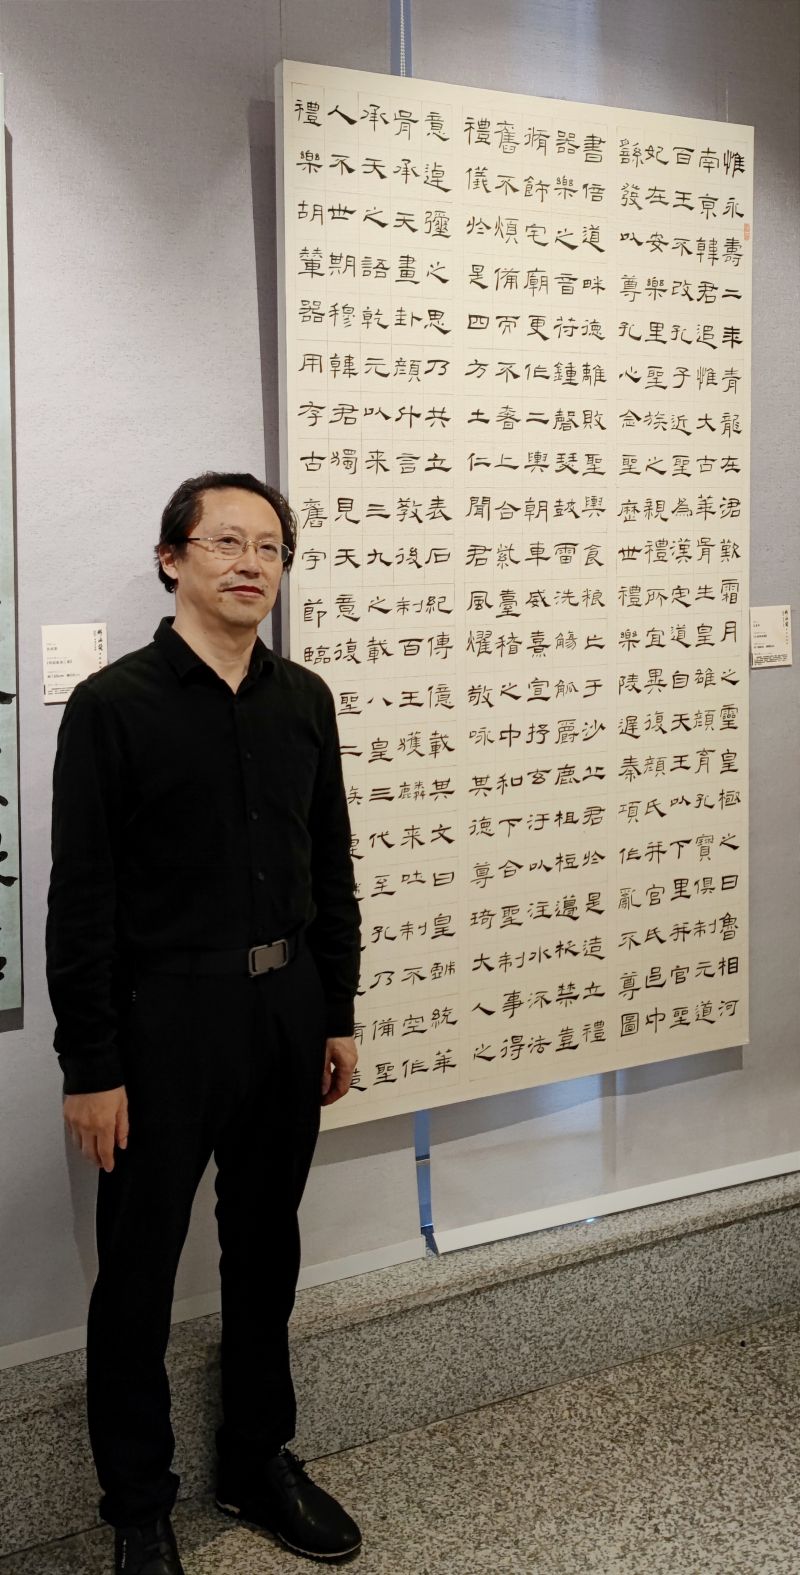 惟永壽二年青龍在涒歎霜月之靈皇極之日魯相河
南京韓君追惟大古華胥生皇雄顏育孔寶俱制元道
百王不改孔子近聖為漢定道自天王以下里并官聖
妃在安樂里聖族之親禮所宜異復顏氏并官氏邑中
繇發以尊孔心念聖歷世禮樂陵遲秦項作亂不尊圖
書倍道畔德離敗聖輿食糧亡于沙丘君於是造立禮
器樂之音符鍾磬瑟鼓雷洗觴觚爵鹿柤梪籩柉禁壺
脩飾宅廟更作二輿朝車威熹宣抒玄汙以注水流法
舊不煩備而不奢上合紫臺稽之中和下合聖制事得
禮儀於是四方土仁聞君風燿敬咏其德尊琦大人之
意逴彌之思乃共立表石紀傳億載其文曰皇戲統華
胥承天畫卦顏什言教後制百王獲麟来吐制不空作
承天之語乾元以来三九之載八皇三代至孔乃備聖
人不世期穆韓君獨見天意復聖二族造
禮樂胡輦器用存古舊宇節臨